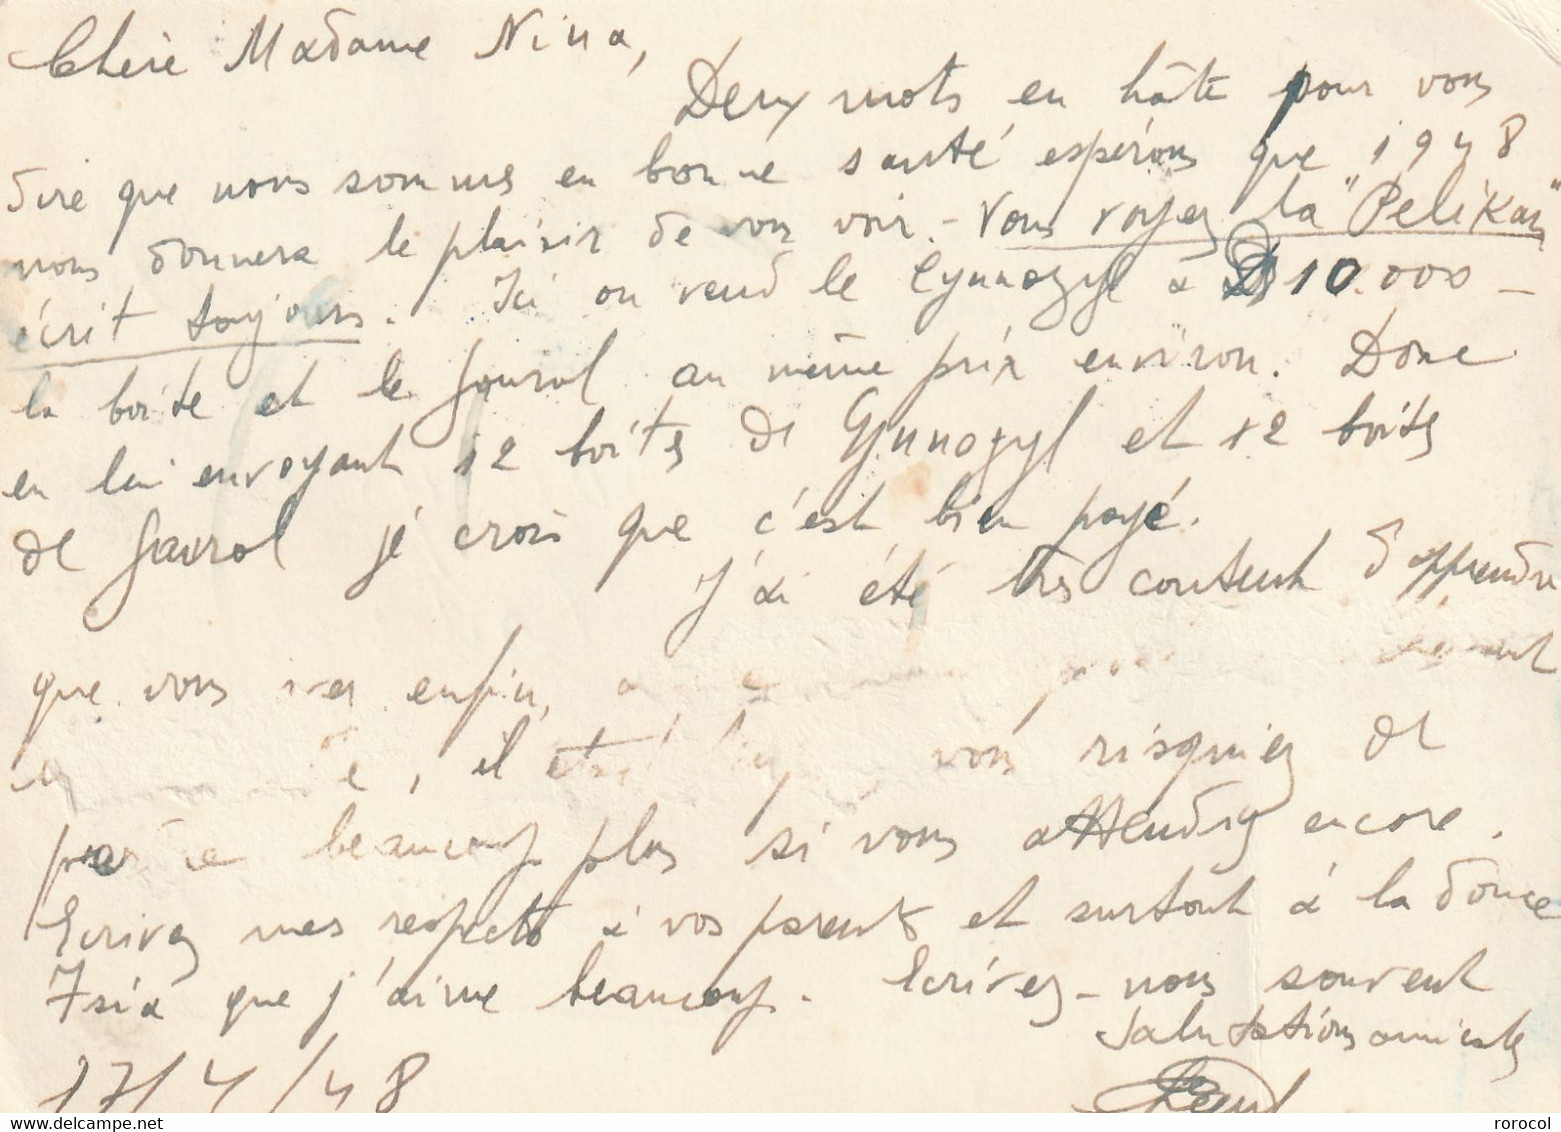 Chère Madame Nina,
Deux mots en hâte pour vous
dire que nous sommes en bonne santé espérons que 1948
nous donnera le plaisir de vous voir. - Vous voyez la "Pelikan"
écrit toujours. Ici on vend le Gynnozyl à 10.000 -
la boite et le Gavrol au même prix environ. Donc
en lui envoyant 12 boîtes de Gynnozyl et 12 boites
de Gavrol je crois que c'est bien payé.
J'ai été très content d'apprendre
que vous enfin,
, il était vous risquiez de
perdre beaucoup plus si vous attendrez encore.
Ecrivez mes respects à vos parents et surtout à la douce
Isia que j'aime beaucoup. Ecrivez-nous souvent
Salutations amicales
17/4/48
rorocol